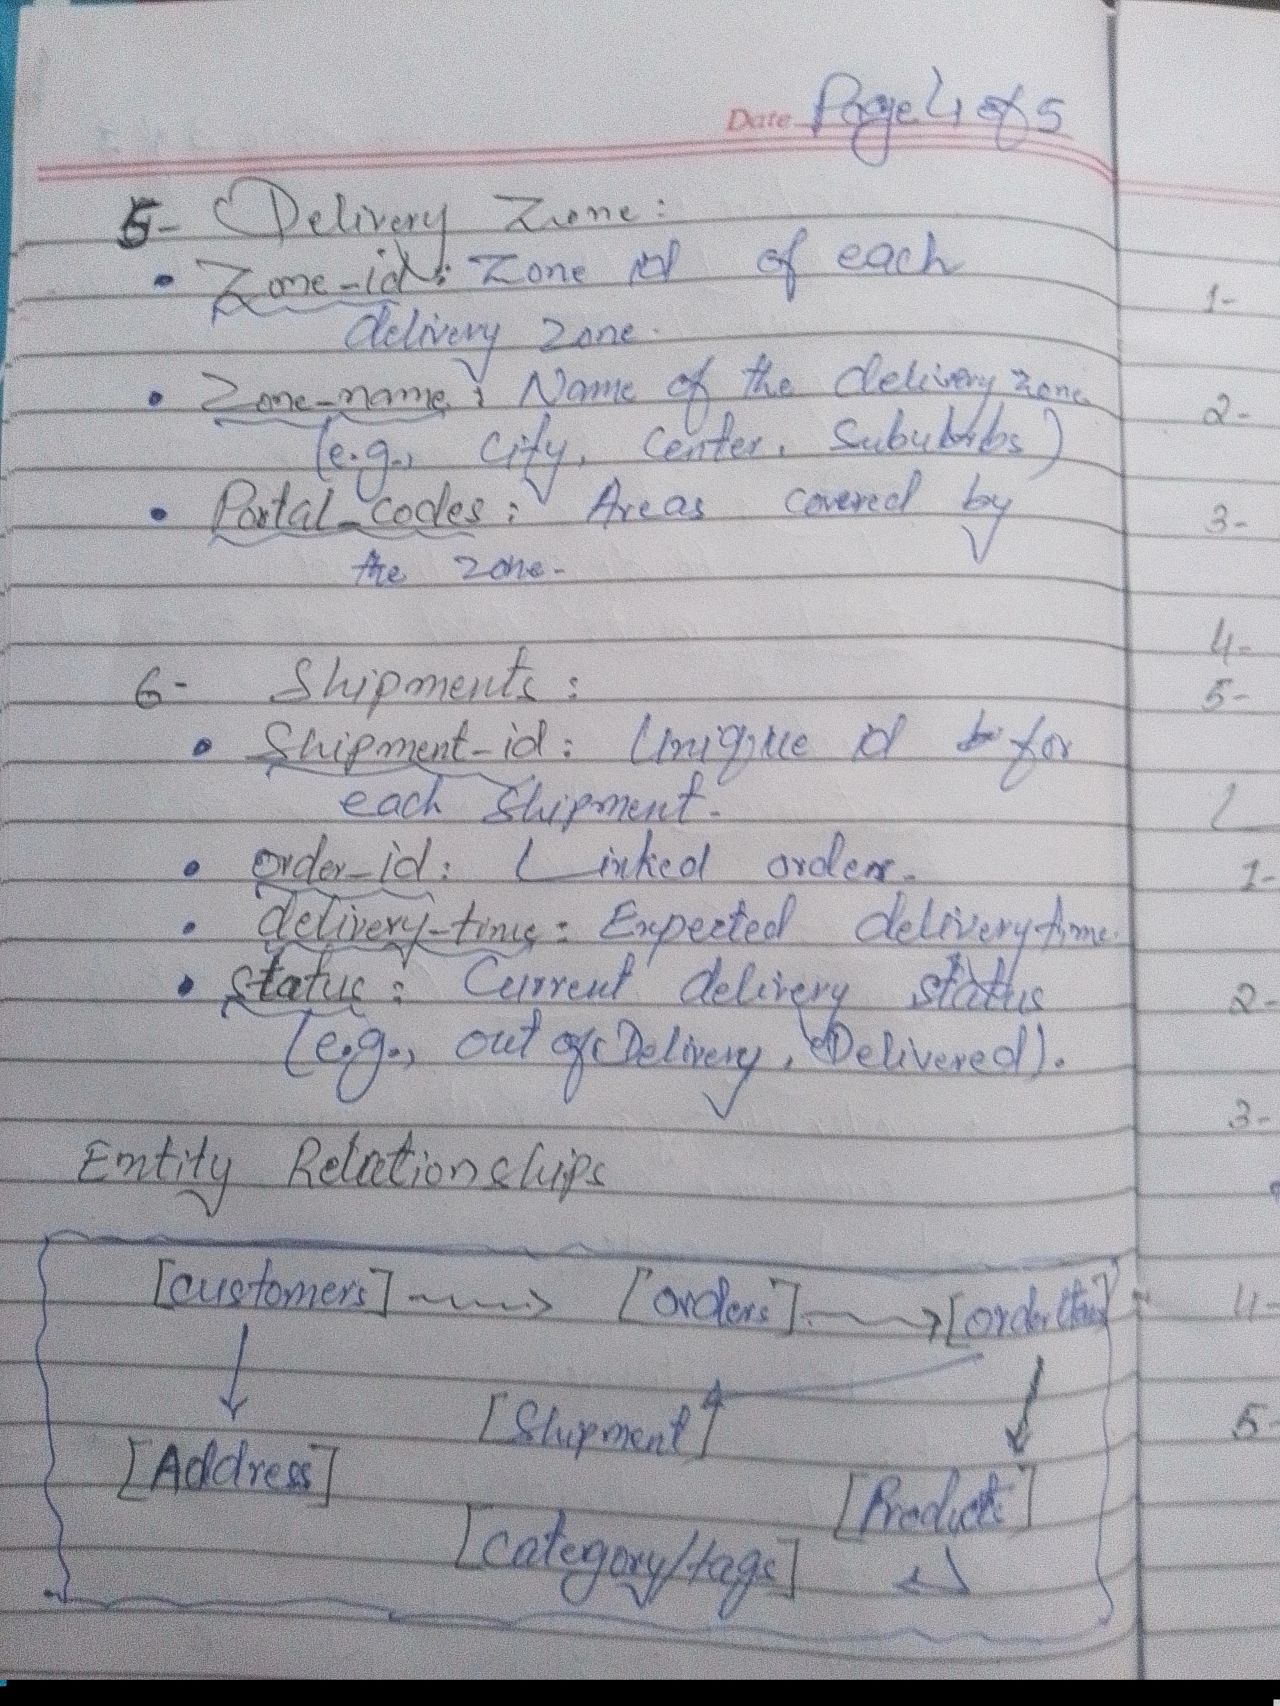 Date Page 4 of 5
5- Delivery Zone:
• Zone-id: Zone id of each
delivery zone.
• Zone-name: Name of the delivery zone
(e.g., City, Center, Suburbs)
• Postal_codes: Areas covered by
the zone.
6- Shipments:
• Shipment-id: Unique id for
each Shipment.
• order-id: Linked order.
• delivery-time: Expected delivery time.
• status: Current delivery status
(e.g., out of Delivery, Delivered).
Entity Relationships
[customers] → [orders] → [order
[Shipment]
[Address]
[Products]
[category/tags]
1-
2-
3-
4-
5-
1-
2-
3-
4-
5-